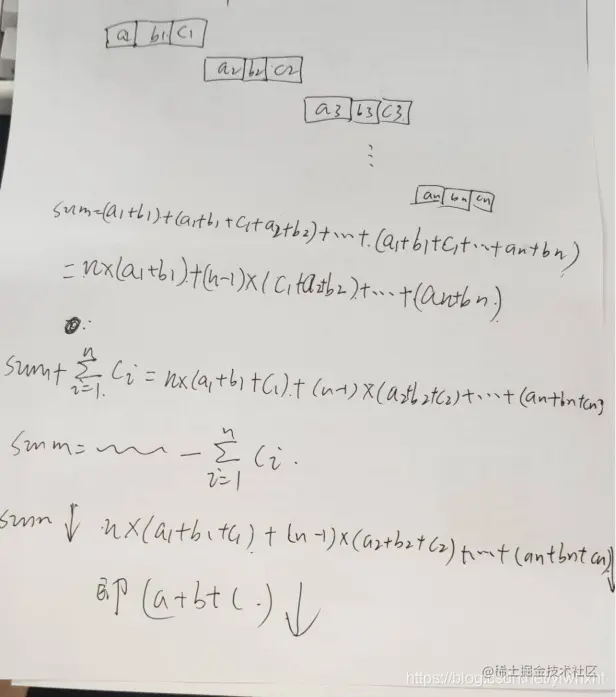 a1 b1 c1
a2 b2 c2
a3 b3 c3
⋮
an bn cn
sum=(a1+b1)+(a1+b1+c1+a2+b2)+...+(a1+b1+c1+...+an+bn)
=n×(a1+b1)+(n-1)×(c1+a2+b2)+...+(an+bn)
sum+∑_{i=1}^{n} Ci = n×(a1+b1+c1)+(n-1)×(a2+b2+c2)+...+(an+bn+cn)
sum= ~~~ - ∑_{i=1}^{n} Ci.
sum↓ n×(a1+b1+c1)+(n-1)×(a2+b2+c2)+...+(an+bn+cn)↓
即(a+b+c.)↓
@稀土掘金技术社区